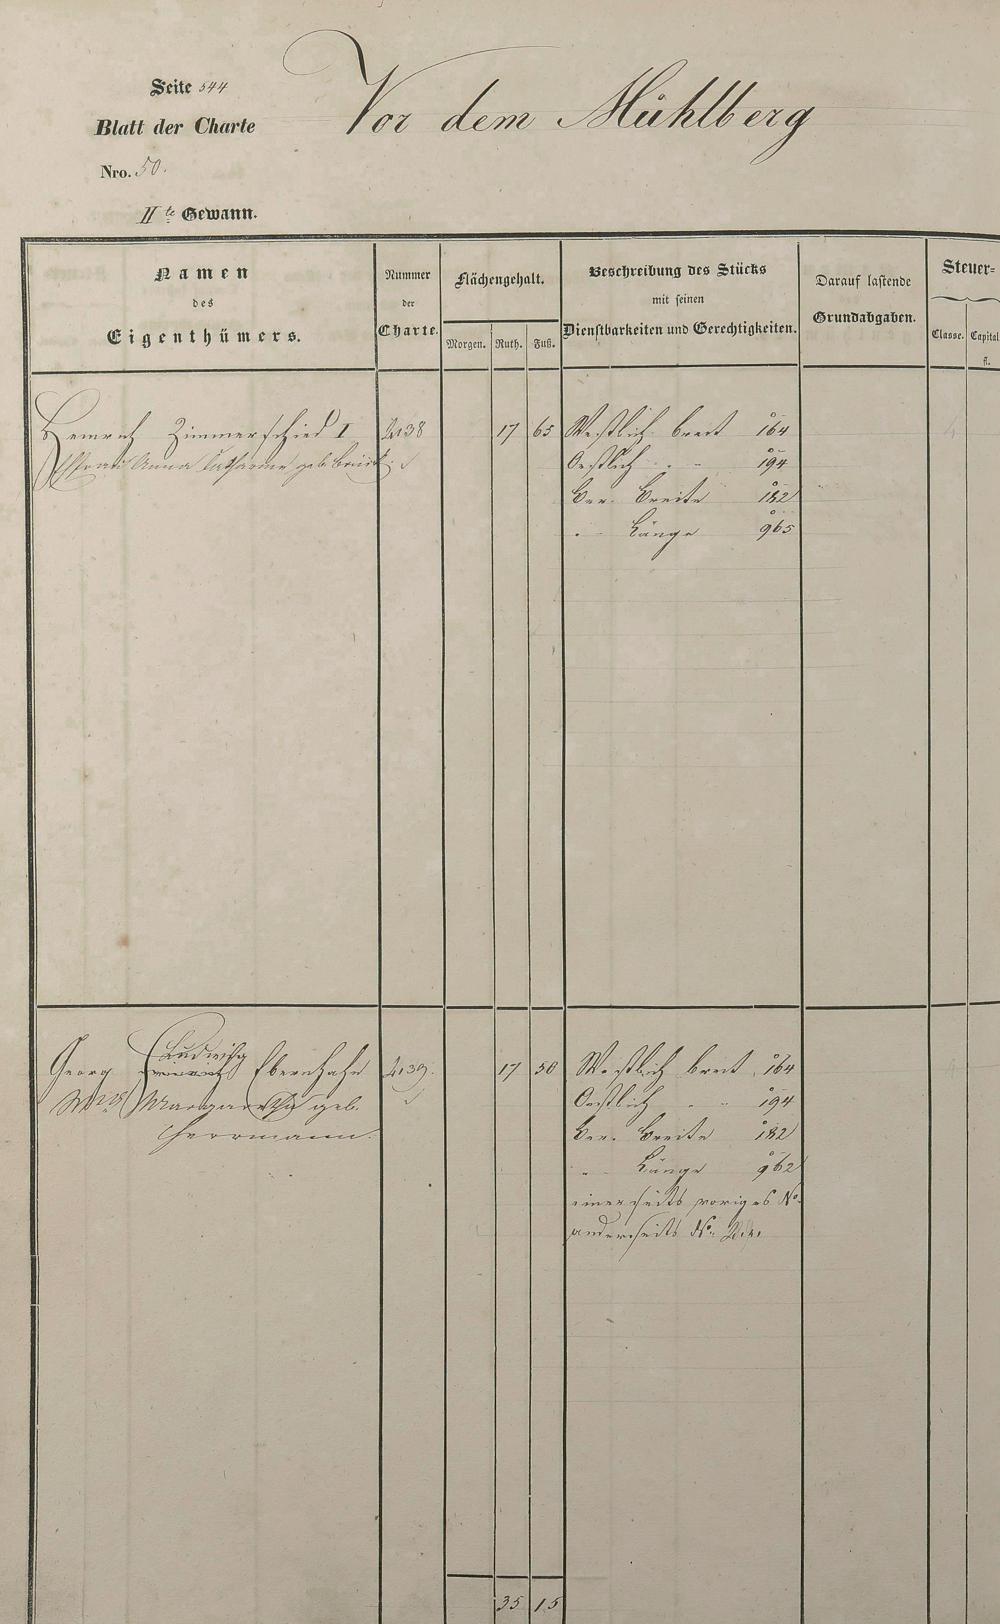 Seite 544
Vor dem Mühlberg
Blatt der Charte
Nro. 50.
IIte Gewann.
Namen
des
Eigenthümers.
Nummer
der
Charte.
Flächengehalt.
Morgen. Ruth. Fuß.
Beschreibung des Stücks
mit seinen
Dienstbarkeiten und Gerechtigkeiten.
Darauf lastende
Grundabgaben.
Steuer-
Classe. Capital
fl.
Heinrich Zimmerschied I 2138 17 65 Westlich breit 164
Anna Catharine geb. Oestlich " " 194
Ber. Breite 182
" Länge 965
Ludwig
Georg Ebernhahn 2139. 17 50 Westlich breit 164
Margaretha geb. Oestlich " " 194
Herrmann. Ber. Breite 182
" Länge 962
einerseits voriges No.
anderseits No.
35 15